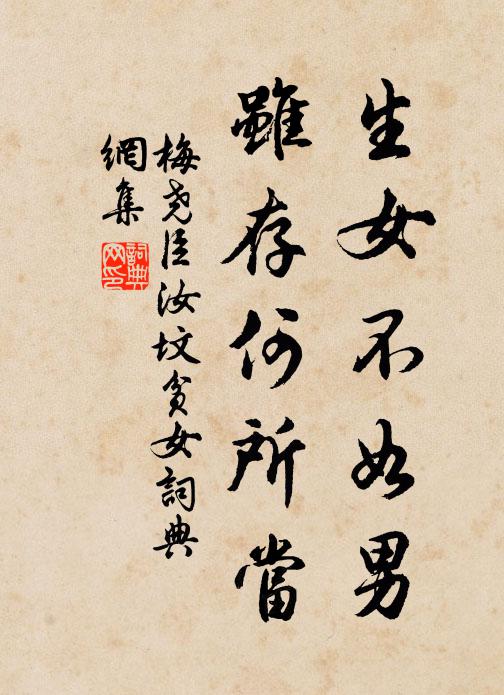 生女不如男
雖存何所當
梅堯臣汝墳貧女詞典
網集
詞典
网印